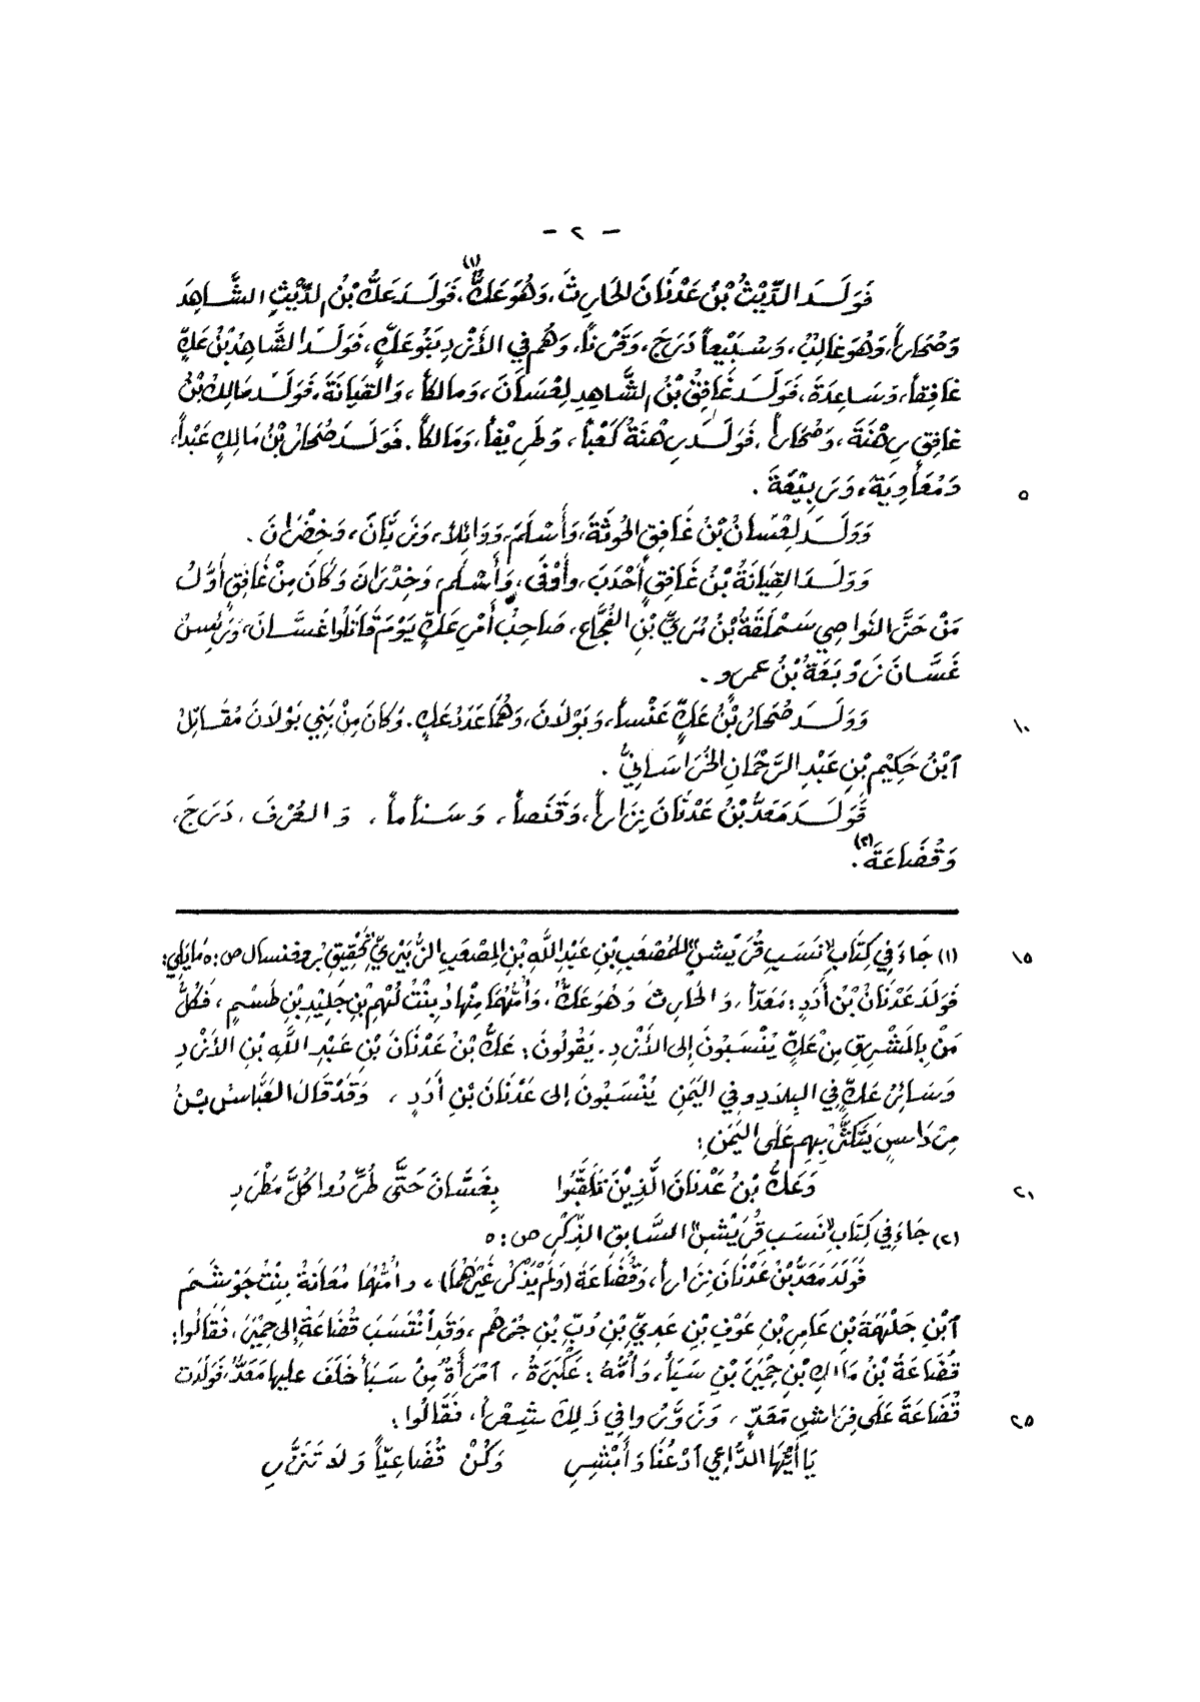 - ٢ -
فَوَلَدَ الدِّيْثُ بْنُ عَدْنَانَ الحَارِثَ، وَهُوَ عَكٌّ(١)، فَوَلَدَ عَكُّ بْنُ الدِّيْثِ الشَّاهِدَ
وَصُحَاراً، وَهُوَ غَالِبٌ، وَسُبَيْعاً دَرَجَ، وَقَرْناً، وَهُم في الأَزْدِ بَنُو عَكٍّ، فَوَلَدَ الشَّاهِدُ بْنُ عَكٍّ
غَافِقاً، وَسَاعِدَةَ، فَوَلَدَ غَافِقُ بْنُ الشَّاهِدِ لِعْسَانَ، وَمالكاً، وَالقيَانَةَ، فَوَلَدَ مَالِكُ بْنُ
غافِقٍ رِهْنَةَ، وَصُحَاراً. فَوَلَدَ رِهْنَةُ كَعْباً، وَطَرِيْفاً، وَمَالكاً. فَوَلَدَ صُحَارُ بْنُ مَالِكٍ عَبْداً،
وَمُعَاوِيَةَ، وَرَبِيْعَةَ. ٥
وَوَلَدَ لِعْسَانُ بْنُ غَافِقٍ الحُوثَةَ، وَأَسْلَمَ، وَوَائِلاً، وَزَبَّانَ، وَخِضْرَانَ.
وَوَلَدَ القِيَانَةُ بْنُ غَافِقٍ أَحْدَبَ، وأَوْفَى، وَأَسْلَمَ، وَخِدْرَانَ وَكَانَ مِنْ غَافِقٍ أَوَّلُ
مَنْ جَزَّ النَّوَاصِي سَمْلَقَةُ بْنُ مُرَيِّ بْنِ الفُجَّاعِ، صَاحِبُ أَمْرِ عَكٍّ يَوْمَ قَاتَلُوا غَسَّانَ، وَرَئِيسُ
غَسَّانَ زَوْبَعَةُ بْنُ عمرٍو.
وَوَلَدَ صُحَارُ بْنُ عَكٍّ عَنْساً، وَبَوْلَانَ، وَهُمَا عَدَدُ عَكٍ. وَكَانَ مِنْ بَنِي بَوْلَانَ مُقَاتِلُ ١٠
ٱبْنُ حَكِيْمِ بْنِ عَبْدِ الرَّحْمَانِ الخُرَاسَانِيُّ.
فَوَلَدَ مَعَدُّ بْنُ عَدْنَانَ نِزَاراً، وَقَنَصاً، وَسَنَاماً، وَالعُرْفَ، دَرَجَ،
وَقُضَاعَةَ(٢).
(١) جَاءَ في كِتَابِ "نَسَبِ قُرَيْشٍ" لِلمُصْعَبِ بْنِ عَبْدِ اللَّهِ بْنِ المُصْعَبِ الزُّبَيْرِيِّ تَحْقِيْقِ بروفنسال ص: ٥ مَا يَلي: ١٥
فَوَلَدَ عَدْنَانُ بْنُ أُدَدٍ: مَعَدّاً، وَالحَارِثَ وَهُوَ عَكٌّ، وَأُمُّهُمَا مِنْهَادُ بِنْتُ لُهْمِ بْنِ جَلِيْدِ بْنِ طَسْمٍ، فَكُلُّ
مَنْ بِالمَشْرِقِ مِنْ عَكٍّ يَنْسَبُونَ إلى الأَزْدِ. يَقُولُونَ: عَكُّ بْنُ عَدْنَانَ بْنِ عَبْدِ اللَّهِ بْنِ الأَزْدِ
وَسَائِرُ عَكٍّ في البِلَادِ وفي اليَمَنِ يُنْسَبُونَ إلى عَدْنَانَ بْنِ أُدَدٍ، وَقَدْ قَالَ العَبَّاسُ بْنُ
مِرْدَاسٍ يَتَكَثَّرُ بِهِم عَلَى اليَمَنِ:
وَعَكُّ بْنُ عَدْنَانَ الَّذِيْنَ تَلَقَّبُوا بِغَسَّانَ حَتَّى طُرِّدُوا كُلَّ مَطْرَدِ ٢١
(٢) جَاءَ في كِتَابِ "نَسَبِ قُرَيْشٍ" السَّابِقِ الذِّكْرِ ص: ٥
فَوَلَدَ مَعَدُّ بْنُ عَدْنَانَ نِزَاراً، وَقُضَاعَةَ (وَلَمْ يَذْكُرْ غَيْرَهُمَا)، وأُمُّهُمَا مُعَانَةُ بِنْتُ جَوْشَمَ
ٱبْنِ جَلْهَمَةَ بْنِ عَامِرِ بْنِ عَوْفِ بْنِ عَدِيِّ بْنِ دُبِّ بْنِ جُرْهُمٍ، وَقَدِ ٱنْتَسَبَ قُضَاعَةُ إلى حِمْيَرَ، فَقَالُوا:
قُضَاعَةُ بْنُ مَالِكِ بْنِ حِمْيَرَ بْنِ سَبَأَ، وَأُمُّهُ: عَكْبَرَةُ، ٱمْرَأَةٌ مِنْ سَبَأَ خَلَفَ عليها مَعَدٌّ، فَوَلَدَت
قُضَاعَةَ عَلَى فِرَاشِ مَعَدٍّ، وَزَوَّرُوا في ذَلِكَ شِعْراً، فَقَالُوا: ٢٥
يَا أَيُّهَا الدَّاعِي ٱدْعُنَا وَأَبْشِرِ وَكُنْ قُضَاعِيّاً وَلَا تَنَزَّرِ